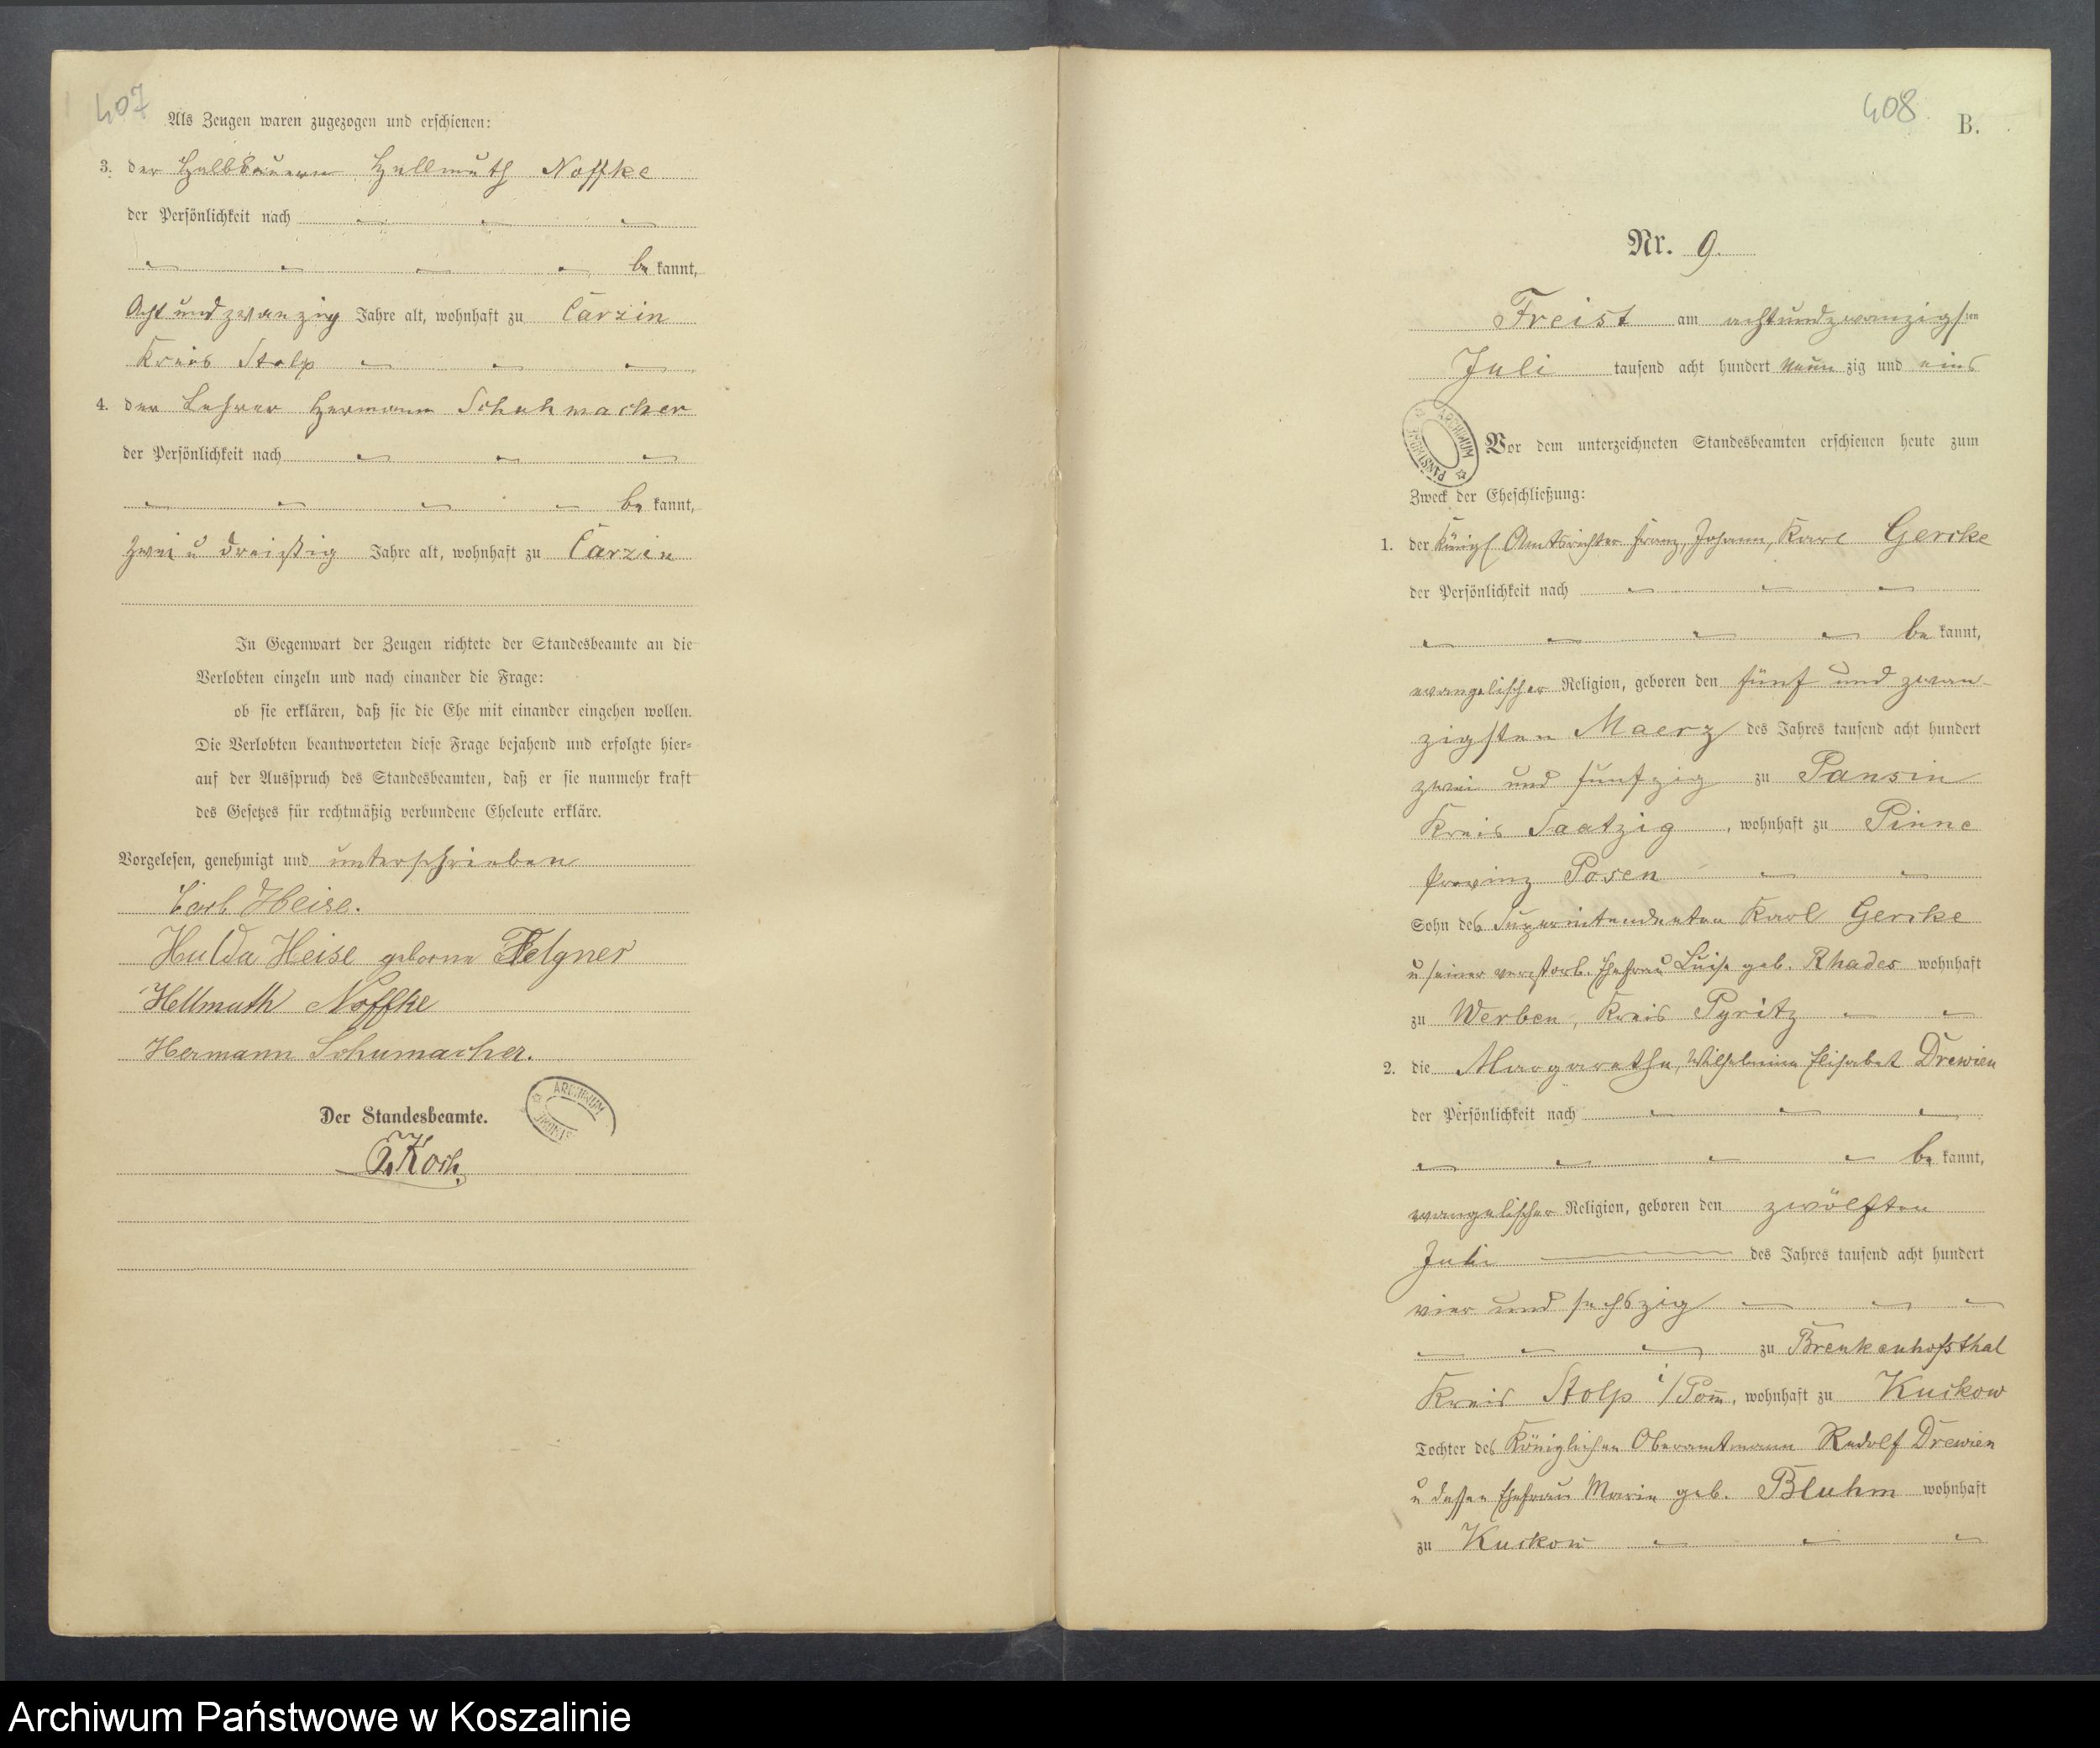 407
Als Zeugen waren zugezogen und erschienen:
3. der Halbbauern Hellmuth Noffke
der Persönlichkeit nach
be kannt,
Acht und zwanzig Jahre alt, wohnhaft zu Carzin
Kreis Stolp
4. der Lehrer Hermann Schuhmacher
der Persönlichkeit nach
be kannt,
zwei u dreißig Jahre alt, wohnhaft zu Carzin
In Gegenwart der Zeugen richtete der Standesbeamte an die
Verlobten einzeln und nach einander die Frage:
ob sie erklären, daß sie die Ehe mit einander eingehen wollen.
Die Verlobten beantworteten diese Frage bejahend und erfolgte hier-
auf der Ausspruch des Standesbeamten, daß er sie nunmehr kraft
des Gesetzes für rechtmäßig verbundene Eheleute erkläre.
Vorgelesen, genehmigt und unterschrieben
Carl Heise.
Hulda Heise geborne Felgner
Hellmuth Noffke
Hermann Schumacher.
ARCHIWUM
Der Standesbeamte.
Koch.
408
B.
Nr. 9.
Freist am achtundzwanzigsten
Juli tausend acht hundert neun zig und eins
ARCHIWUM PAŃSTWOWE
Vor dem unterzeichneten Standesbeamten erschienen heute zum
Zweck der Eheschließung:
1. der Königl Amtsrichter Franz, Johann, Karl Gercke
der Persönlichkeit nach
be kannt,
evangelischer Religion, geboren den fünf und zwan-
zigsten Maerz des Jahres tausend acht hundert
zwei und fünfzig zu Pansin
Kreis Saatzig, wohnhaft zu Pinne
Provinz Posen
Sohn des Superintendenten Karl Gercke
u seiner verstorb. Ehefrau Luise geb. Rhades wohnhaft
zu Werben, Kreis Pyritz
2. die Margarethe, Wilhelmine Elisabet Drewien
der Persönlichkeit nach
be kannt,
evangelischer Religion, geboren den zwölften
Juli des Jahres tausend acht hundert
vier und sechszig
zu Brenkenhofsthal
Kreis Stolp i/Pom, wohnhaft zu Kuckow
Tochter des Königlichen Oberamtmann Rudolf Drewien
u dessen Ehefrau Marie geb. Bluhm wohnhaft
zu Kuckow
Archiwum Państwowe w Koszalinie